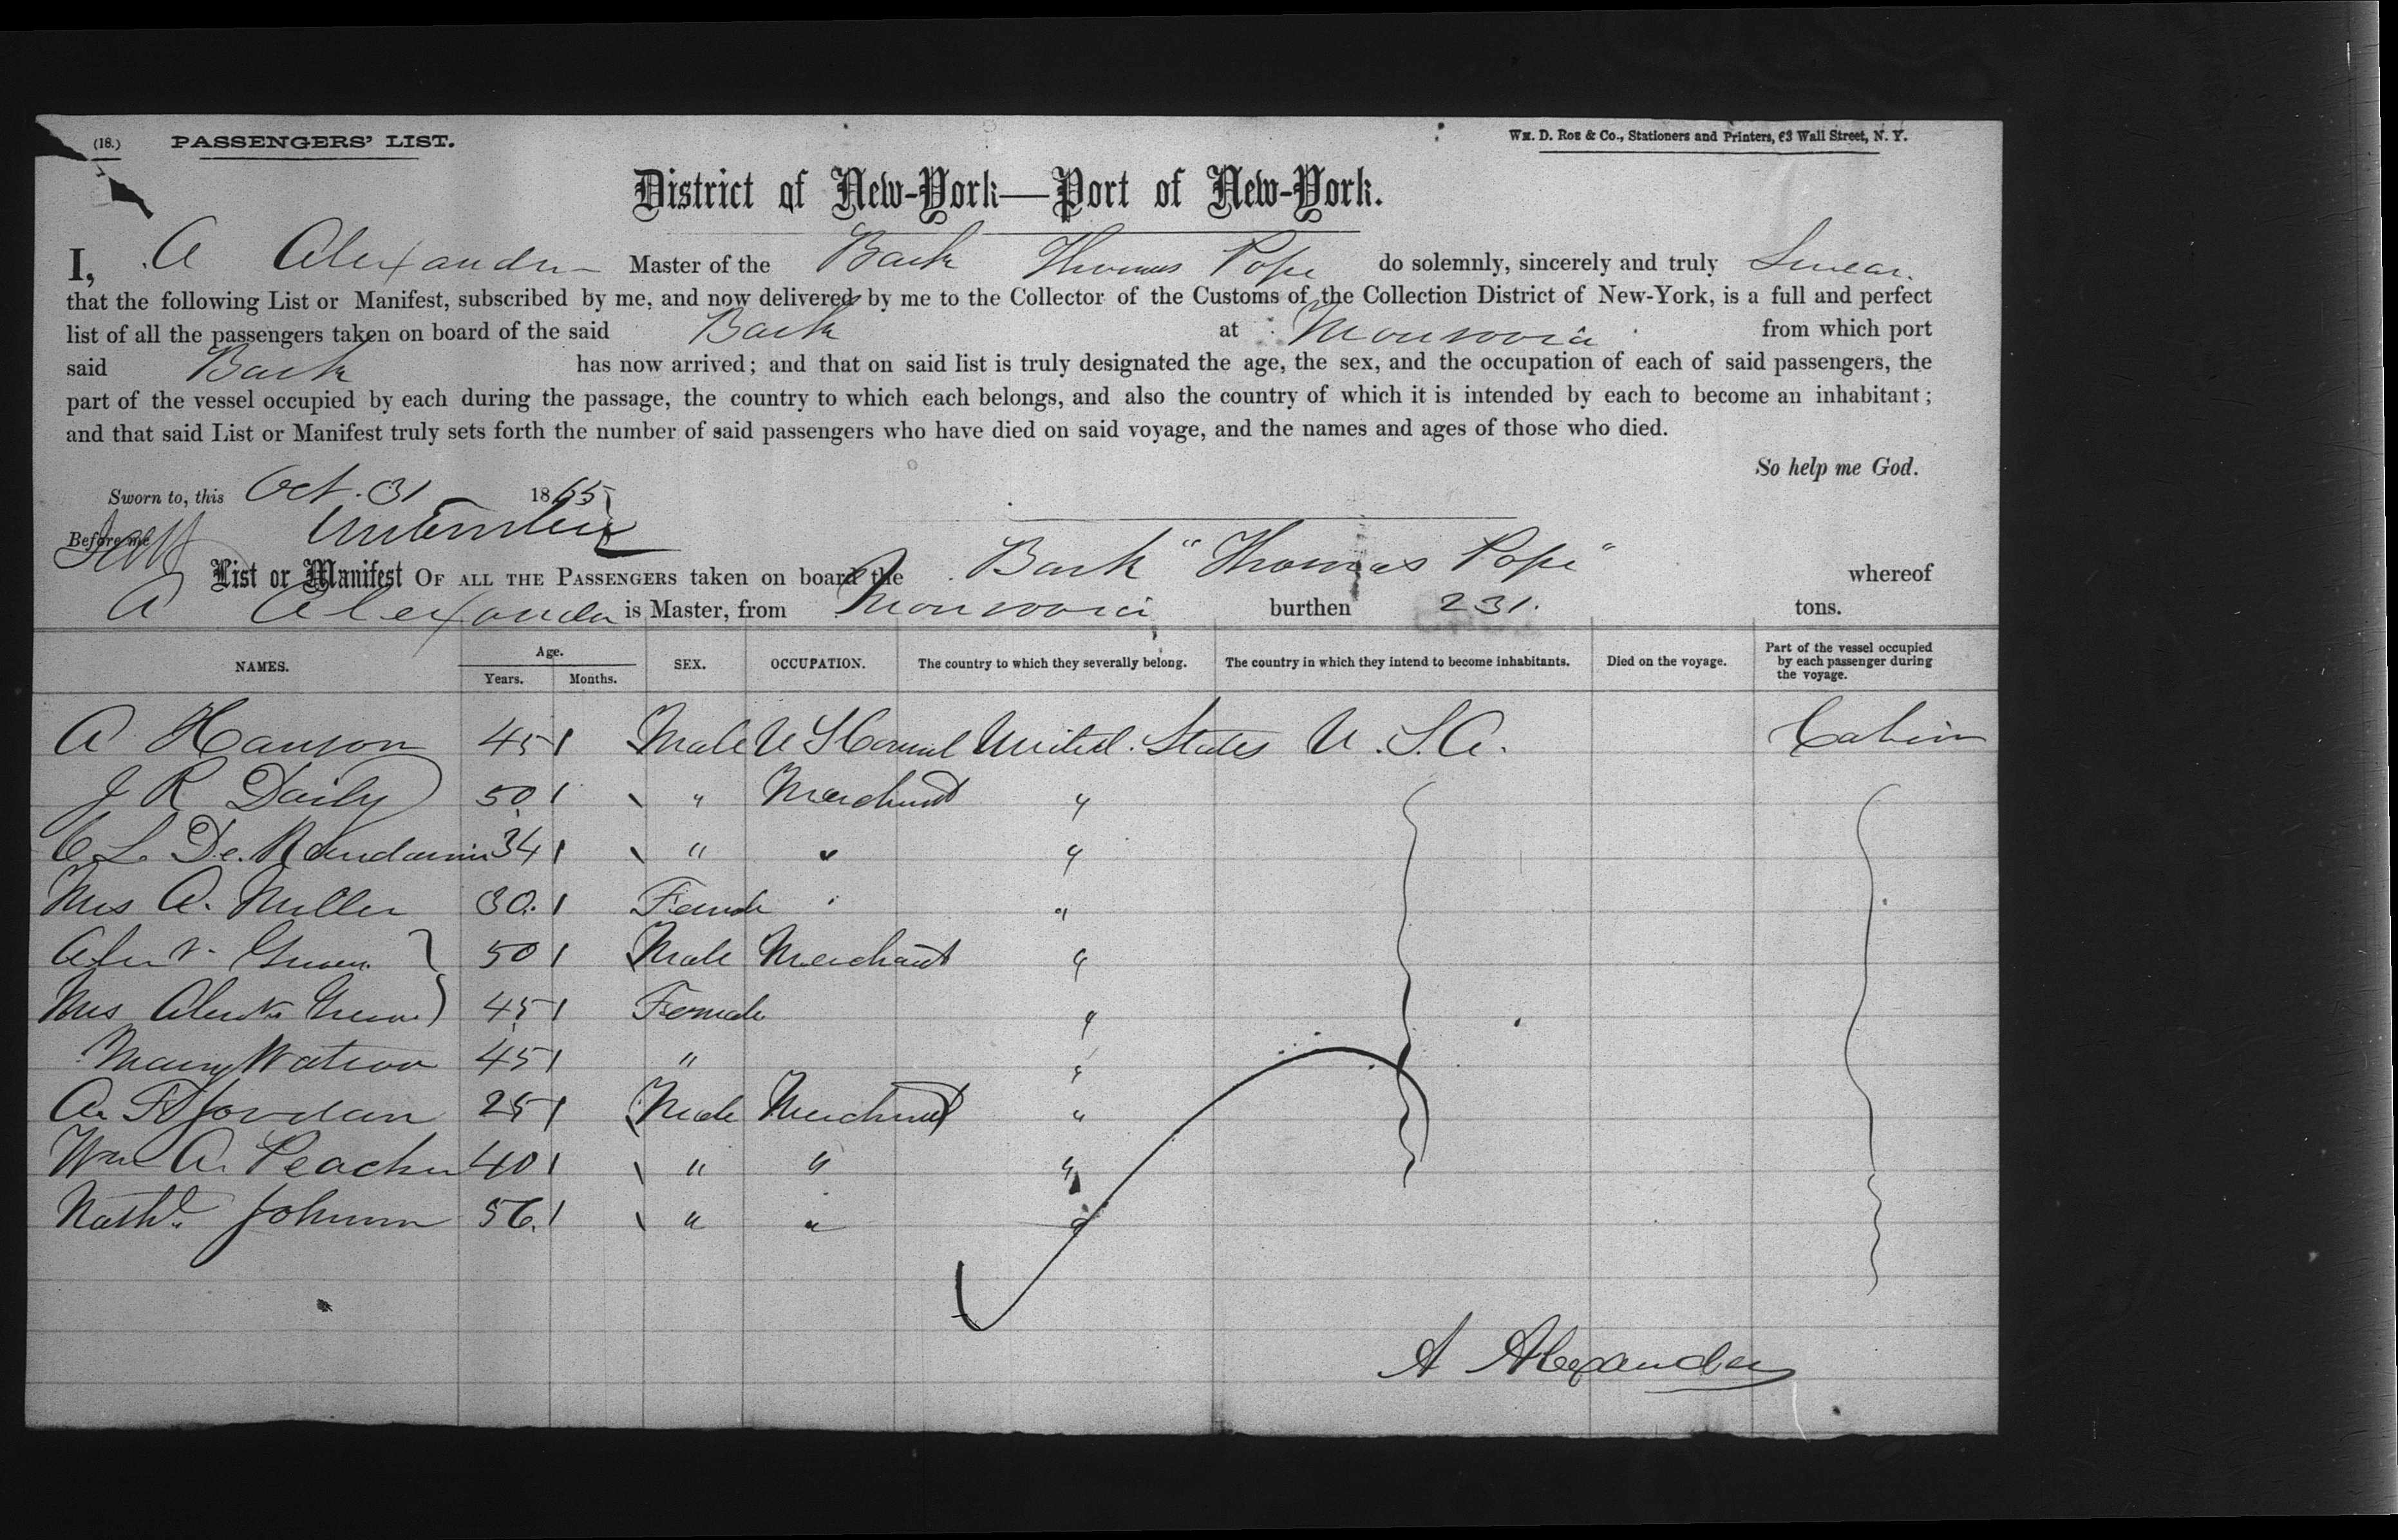 (18.) PASSENGERS' LIST.
Wm. D. Roe & Co., Stationers and Printers, 63 Wall Street, N. Y.
District of New-York—Port of New-York.
I, A Alexander Master of the Bark Thomas Pope do solemnly, sincerely and truly Swear.
that the following List or Manifest, subscribed by me, and now delivered by me to the Collector of the Customs of the Collection District of New-York, is a full and perfect
list of all the passengers taken on board of the said Bark at Monrovia from which port
said Bark has now arrived; and that on said list is truly designated the age, the sex, and the occupation of each of said passengers, the
part of the vessel occupied by each during the passage, the country to which each belongs, and also the country of which it is intended by each to become an inhabitant;
and that said List or Manifest truly sets forth the number of said passengers who have died on said voyage, and the names and ages of those who died.
So help me God.
Sworn to, this Oct. 31 1865
Before me
List or Manifest OF ALL THE PASSENGERS taken on board the Bark "Thomas Pope" whereof
A Alexander is Master, from Monrovia burthen 231. tons.
NAMES. Age. Years. Months. SEX. OCCUPATION. The country to which they severally belong. The country in which they intend to become inhabitants. Died on the voyage. Part of the vessel occupied by each passenger during the voyage.
A Hanson 45 1 Male U S Consul United States U. S. A. Cabin
J R Daily 50 1 " Merchant "
C L De 34 1 " " "
Mrs A. Miller 30. 1 Female "
50 1 Male Merchant "
Mrs 45 1 Female "
Mary Watson 45 1 " "
A. F Jordan 25 1 Male Merchant "
Wm A. Peacher 40 1 " " "
Nathl. Johnson 56. 1 " " "
A Alexander